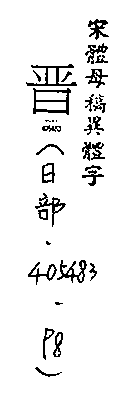 宋體母稿異體字
晉(日部-405483-P8)